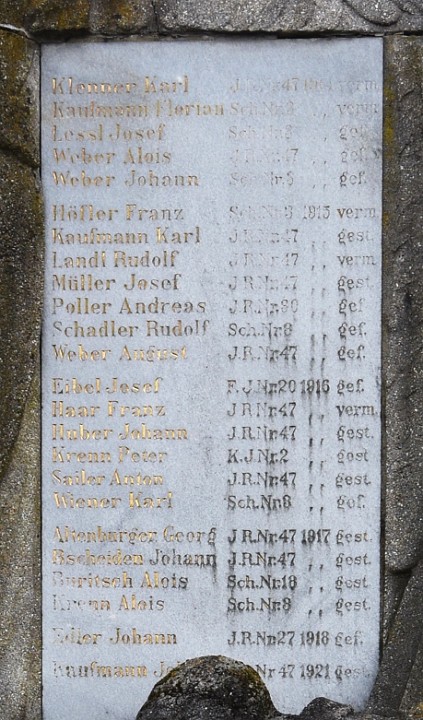 Klenner Karl J.R.Nr.47 1914 verm.
Kaufmann Florian Sch.Nr.3 ,, verm.
Lessl Josef Sch.Nr.3 ,, gef.
Weber Alois J.R.Nr.47 ,, gef.
Weber Johann Sch.Nr.3 ,, gef.
Höfler Franz Sch.Nr.3 1915 verm.
Kaufmann Karl J.R.Nr.47 ,, gest.
Landl Rudolf J.R.Nr.47 ,, verm.
Müller Josef J.R.Nr.47 ,, gest.
Poller Andreas J.R.Nr. ,, gef.
Schadler Rudolf Sch.Nr.8 ,, gef.
Weber August J.R.Nr.47 ,, gef.
Eibel Josef F.J.Nr.20 1916 gef.
Haar Franz J.R.Nr.47 ,, verm.
Huber Johann J.R.Nr.47 ,, gest.
Krenn Peter K.J.Nr.2 ,, gest
Sailer Anton J.R.Nr.47 ,, gest.
Wiener Karl Sch.Nr.8 ,, gef.
Altenburger Georg J.R.Nr.47 1917 gest.
Bscheiden Johann J.R.Nr.47 ,, gest.
Buritsch Alois Sch.Nr.18 ,, gest.
Krenn Alois Sch.Nr.8 ,, gest.
Edler Johann J.R.Nr.27 1918 gef.
Kaufmann Nr.47 1921 gest.